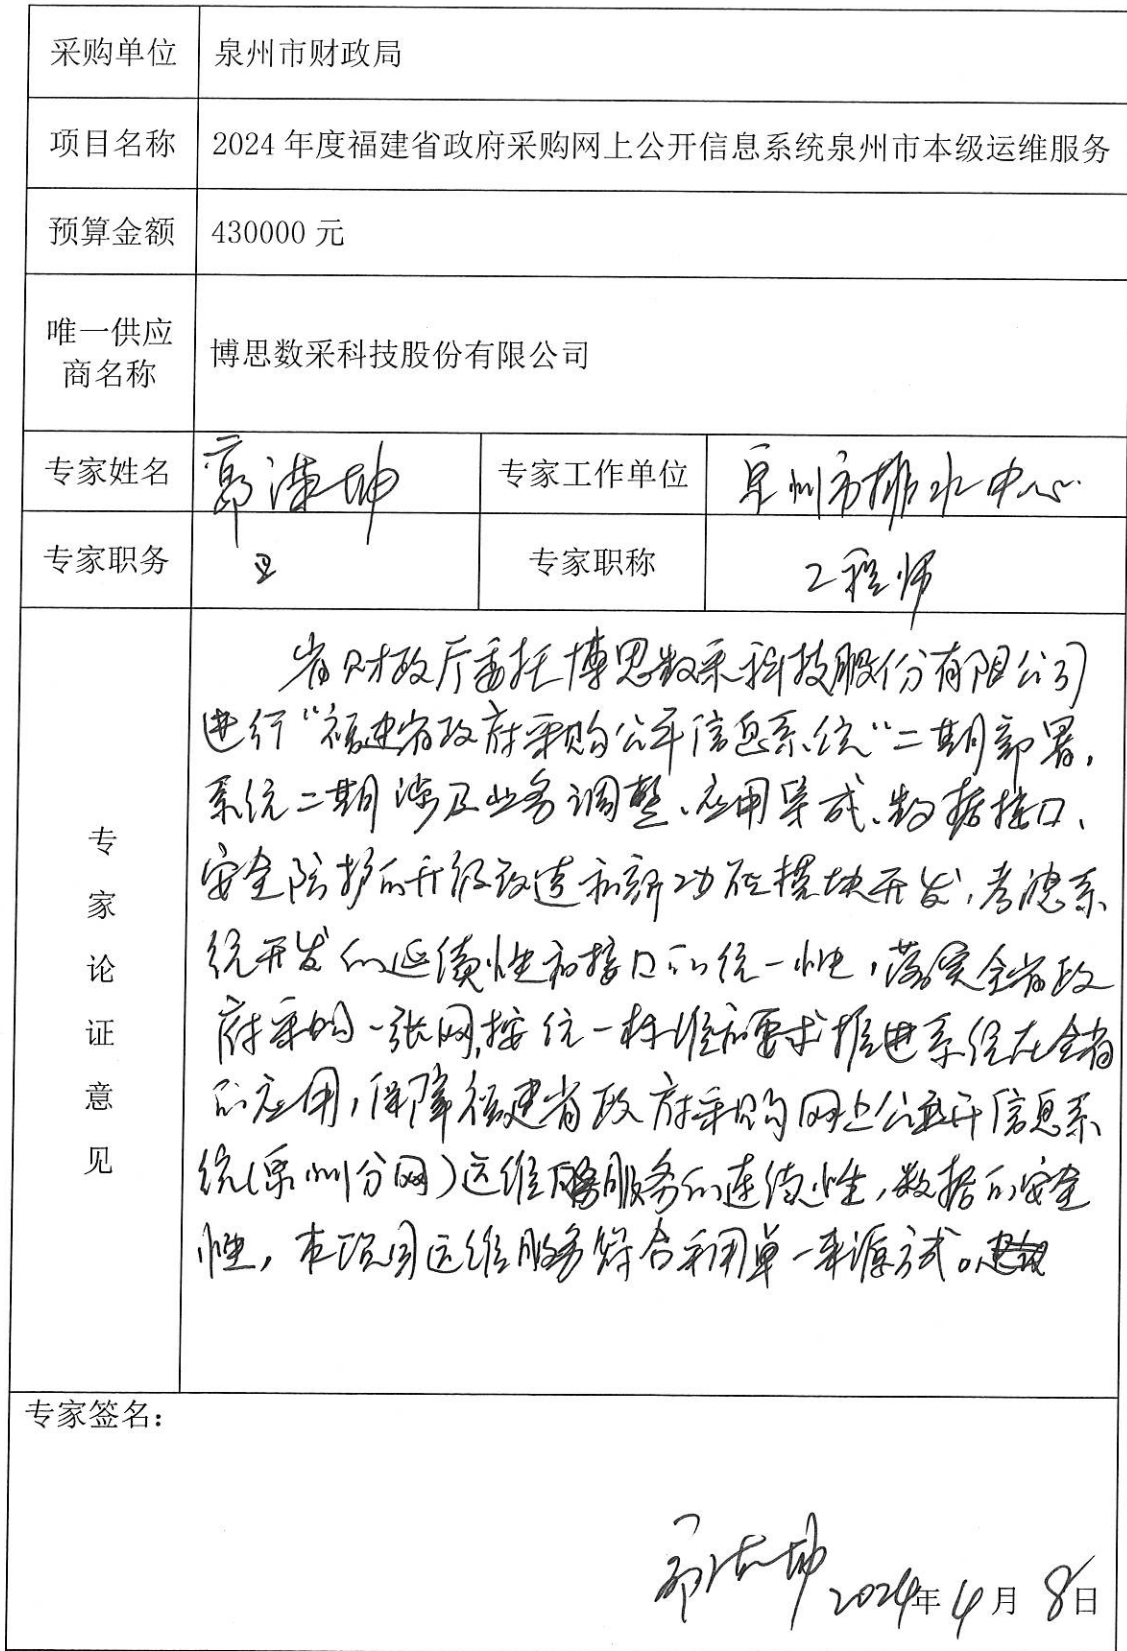 采购单位 泉州市财政局
项目名称 2024 年度福建省政府采购网上公开信息系统泉州市本级运维服务
预算金额 430000 元
唯一供应
商名称
博思数采科技股份有限公司
专家姓名 郭 坤 专家工作单位 泉州市排水中心
专家职务 专家职称 工程师
专家论证意见
省财政厅委托博思数采科技股份有限公司
进行“福建省政府采购公开信息系统”二期部署,
系统二期涉及业务调整、应用集成、数据接口、
安全防护的升级改造和新功能模块开发,考虑系
统开发的延续性和接口的统一性,落实全省政
府采购一张网,按统一标准和要求推进系统在全省
的应用,保障福建省政府采购网上公开信息系
统(泉州分网)运维服务的连续性,数据的安全
性,本项目运维服务符合采用单一来源方式。
专家签名:
郭 坤 2024年4月8日